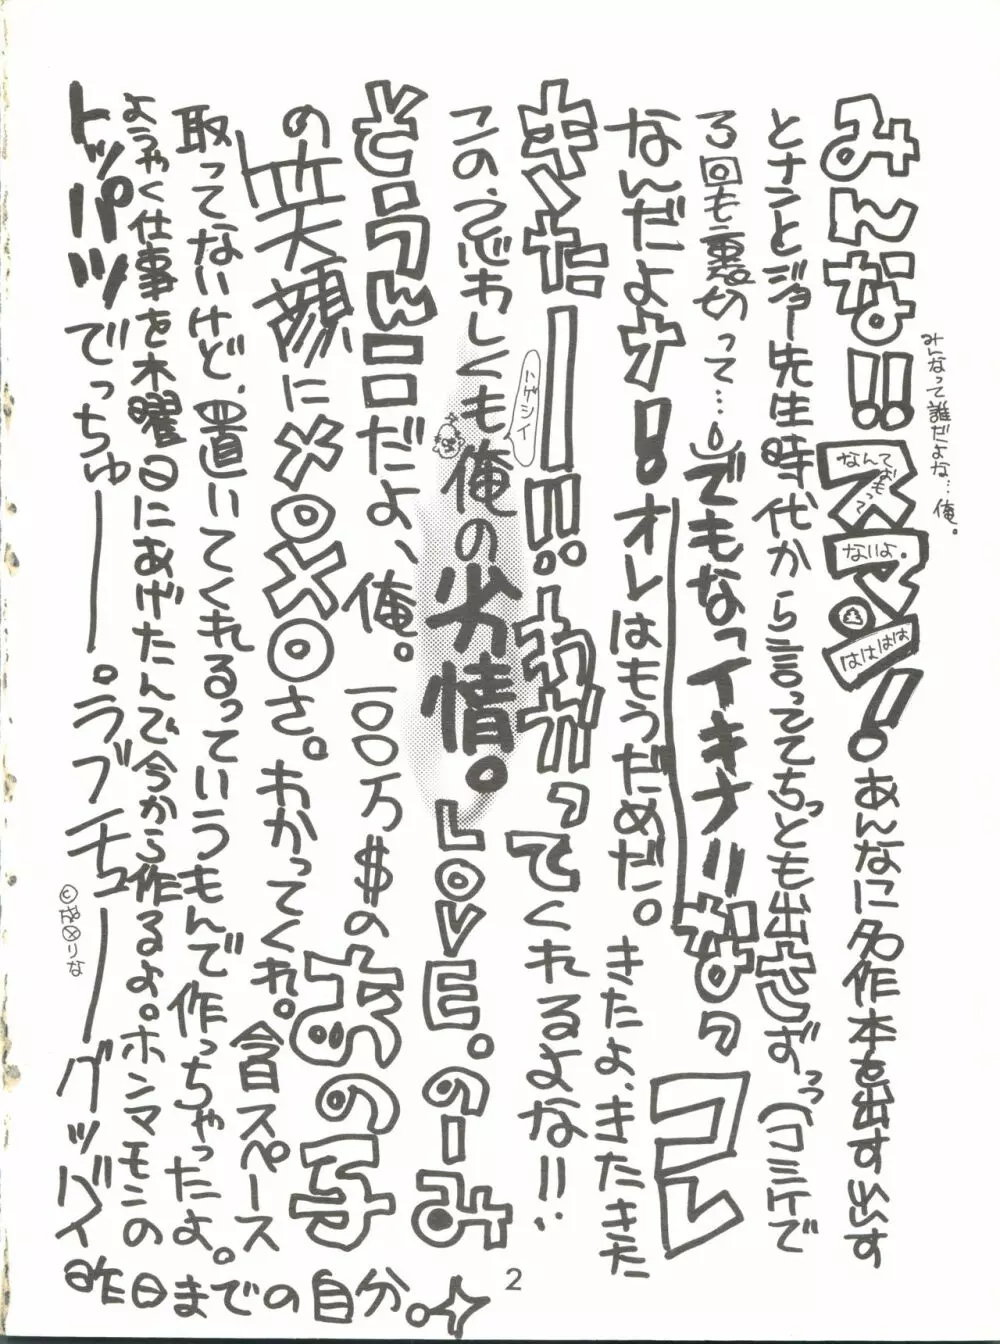 みんな!!スマン!あんなに名作本を出す出す
なんておもって
ないよ。
はははは
みんなって誰だよな…俺。
とナランとジョー先生時代から言っててちっとも出さずっっ(コミケで
る回も裏切って…。)でもなっイキナリなっコレ
なんだよナ!オレはもうだめだ。きたよ、きたきた
キターー!!わかってくれるよな!!
ハゲシイ
この、うじわしくも俺の劣情。LOVE。のーみ
そうんこだよ、俺。一〇〇万$のあの子
の笑顔にメロメロさ。わかってくれ。今日スペース
取ってないけど、置いてくれるっていうもんで作っちゃったよ。
ようやく仕事を木曜日にあげたんで今から作るよ。ホンマモンの
トッパツでっちゅーー。ラブチューーグッバイ
昨日までの自分。
2